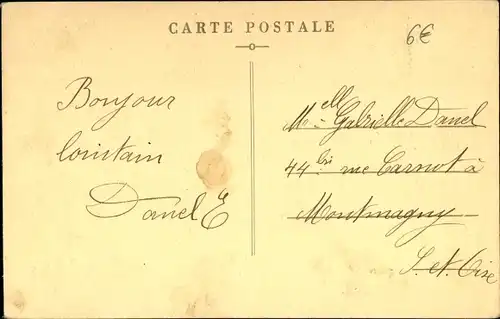 CARTE POSTALE
6€
Bonjour
lointain
Danel E
Melle Gabrielle Danel
44 bis rue Carnot à
Montmagny
S. et. Oise